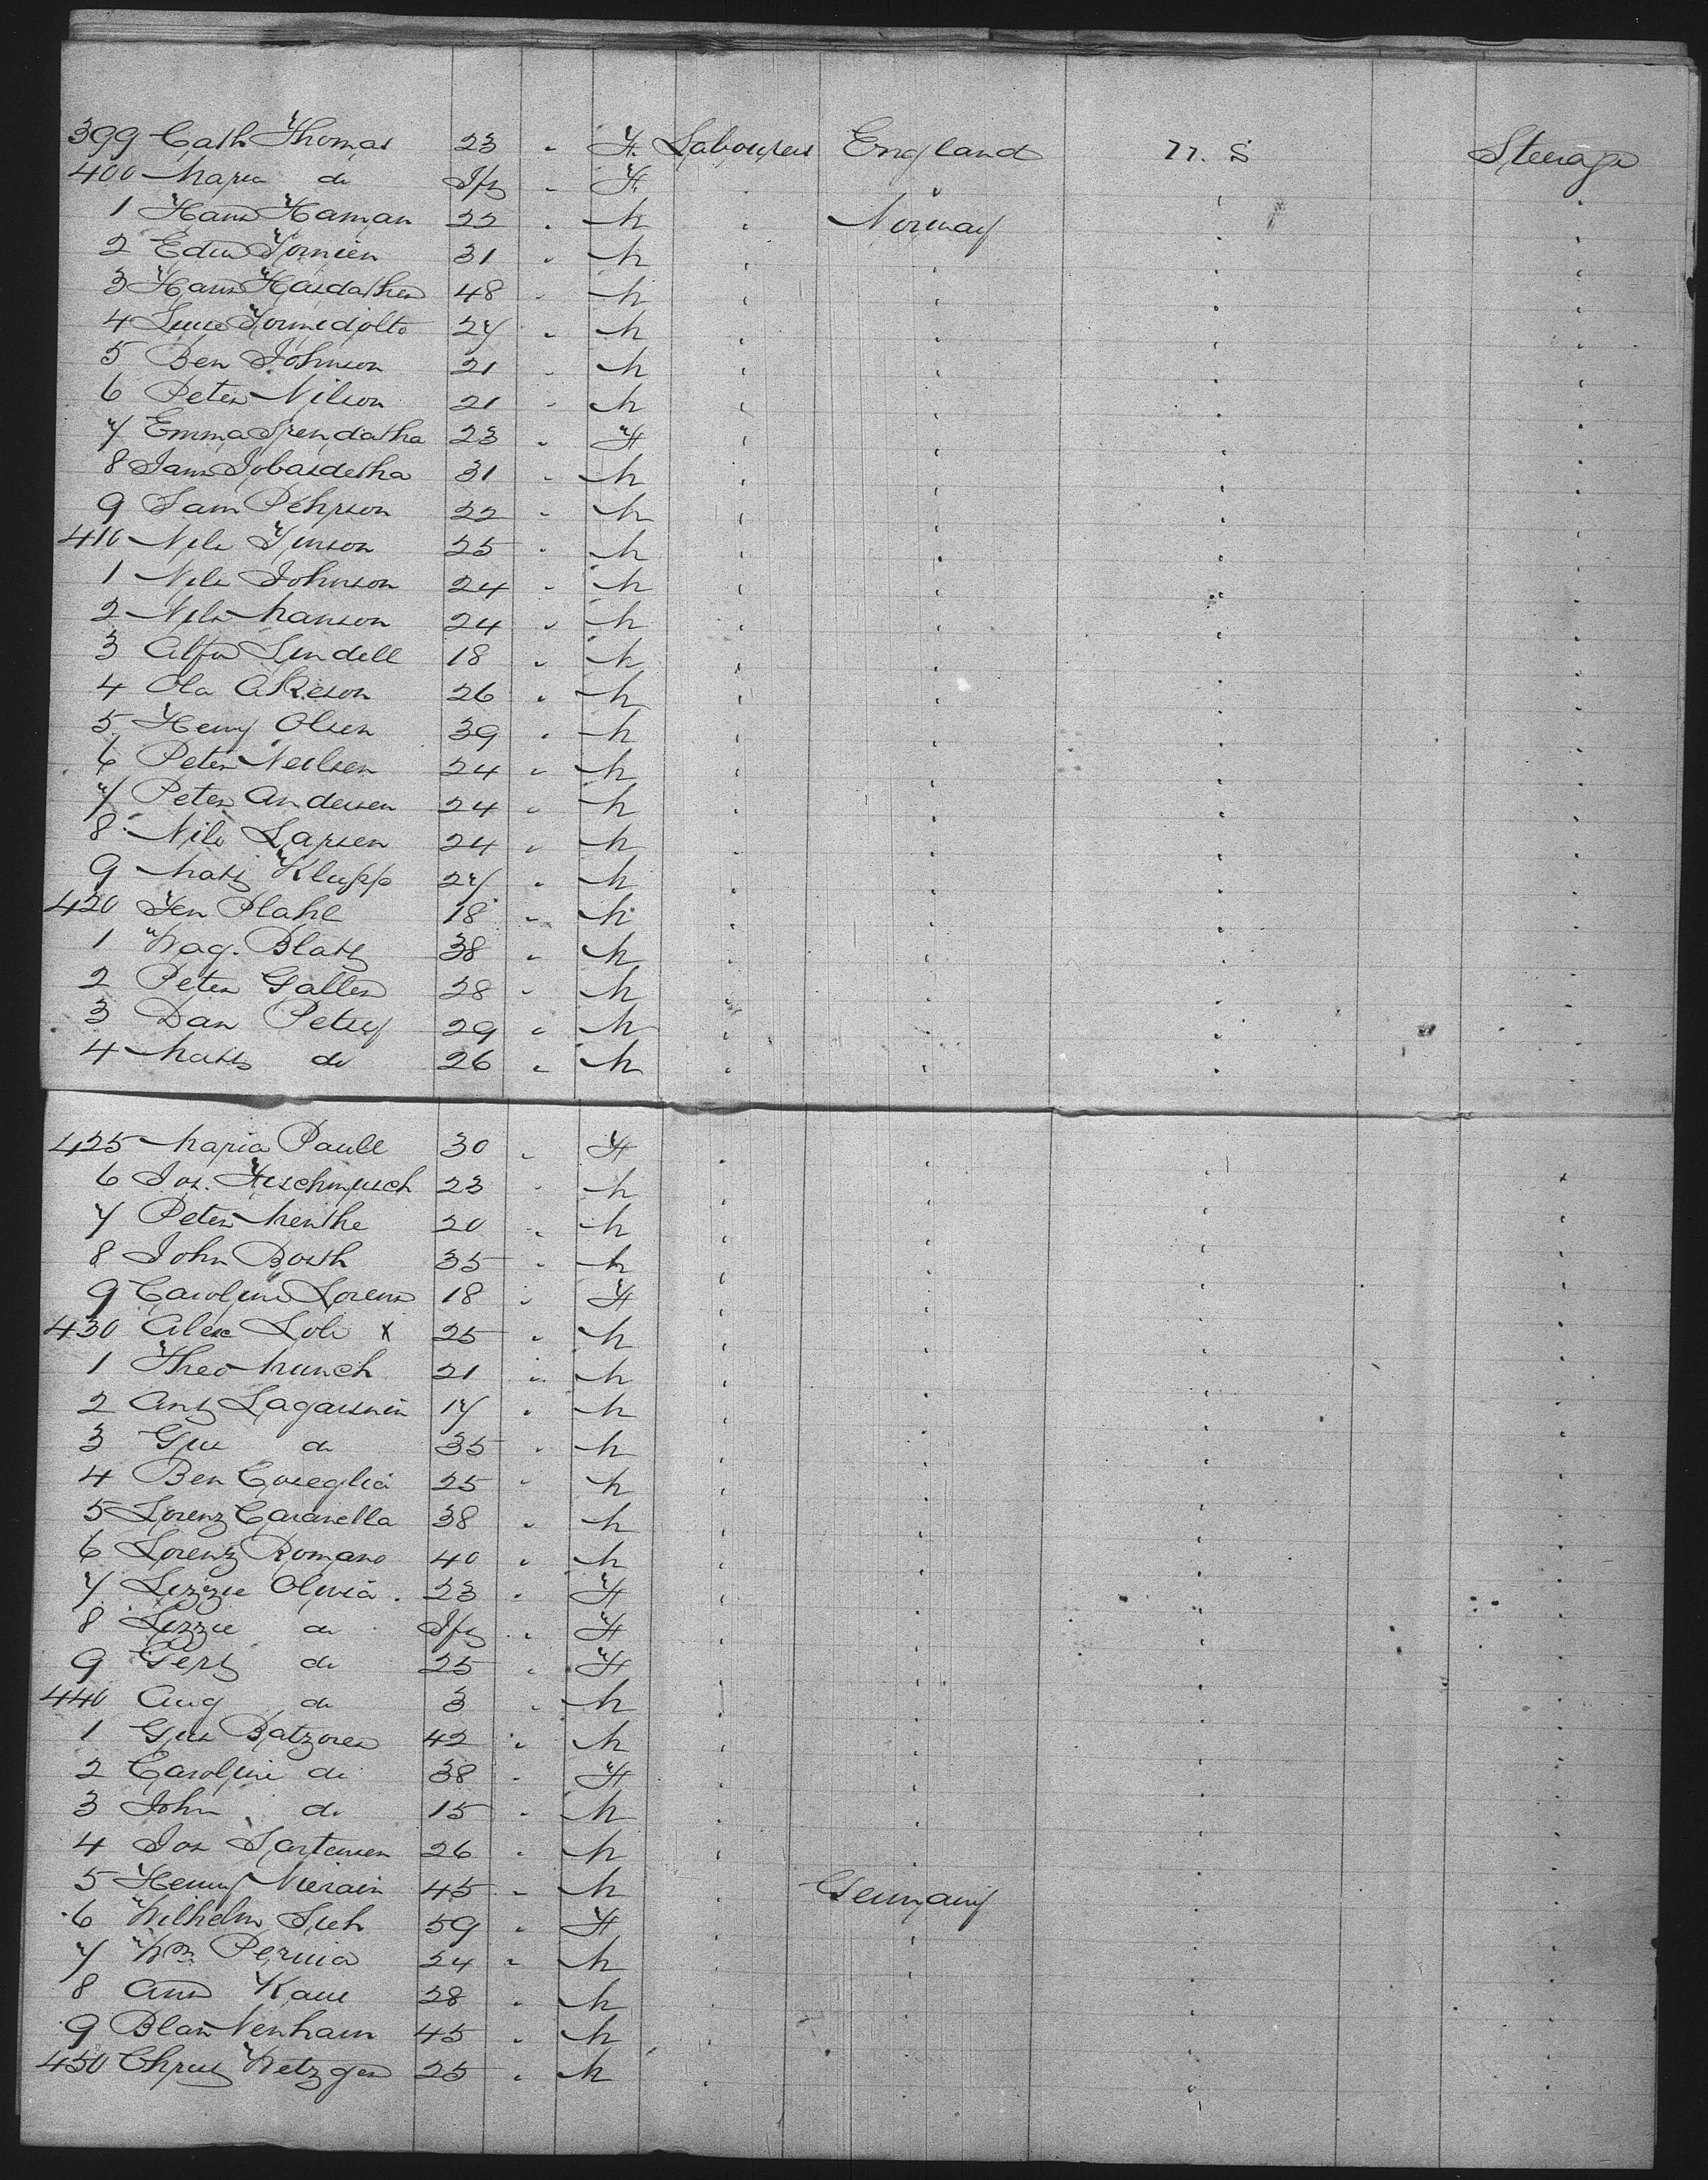 399 Cath Thomas 23 " F. Labourers England U. S Steerage
400 Maria do Inf " F.
1 Hans Haman 22 " M " Norway
2 Edw 31 " M
3 Hans 48 " M
4 27 " M
5 Ben Johnson 21 " M
6 Peter Nilson 21 " M
7 Emma 23 " F
8 31 " M
9 Sam Pehrson 22 " M
410 Nils 25 " M
1 Nils Johnson 24 " M
2 Nils Manson 24 " M
3 Alfr Lindell 18 " M
4 Ola Akeson 26 " M
5 Henry Olsen 39 " M
6 Peter Neilsen 24 " M
7 Peter Andersen 24 " M
8 Nils Larsen 24 " M
9 Matts Klupp 27 " M
420 Jen Plahl 18 " M
1 Wag. Blatz 38 " M
2 Peter Galler 28 " M
3 Dan Petry 29 " M
4 Matts do 26 " M
425 Maria Paull 30 " F
6 Jos. 23 " M
7 Peter Menthe 20 " M
8 John Booth 35 " M
9 Caroline Lorenz 18 " F
430 Alex Lob x 25 " M
1 Theo Munch 21 " M
2 Ant 17 " M
3 Gus do 35 " M
4 Ben Coseglia 25 " M
5 Lorenz Caranella 38 " M
6 Lorenz Romano 40 " M
7 Lizzie Olivia 23 " F
8 Lizzie do Inf " F
9 Gert do 25 " F
440 Aug do 3 " M
1 Gus Batzorer 42 " M
2 Caroline do 38 " F
3 John do 15 " M
4 Jos 26 " M
5 Henry 45 " M " Germany
6 Wilhelm 59 " F
7 Wm 24 " M
8 28 " M
9 45 " M
450 Metzger 25 " M